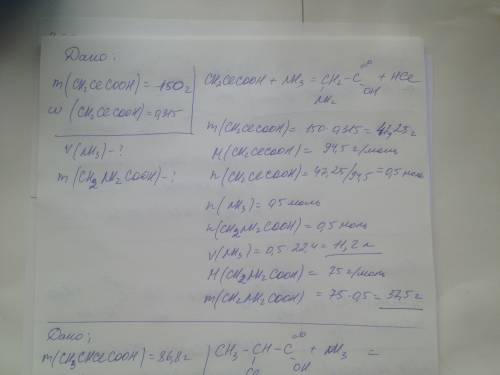 Дано:
m(CH₂ClCOOH) = 150 г
w(CH₂ClCOOH) = 0,315
V(NH₃) - ?
m(CH₂NH₂COOH) - ?
CH₂ClCOOH + NH₃ = CH₂ - C =O + HCl
NH₂ OH
m(CH₂ClCOOH) = 150 · 0,315 = 47,25 г
M(CH₂ClCOOH) = 94,5 г/моль
n(CH₂ClCOOH) = 47,25/94,5 = 0,5 моль
n(NH₃) = 0,5 моль
n(CH₂NH₂COOH) = 0,5 моль
V(NH₃) = 0,5 · 22,4 = 11,2 л
M(CH₂NH₂COOH) = 75 г/моль
m(CH₂NH₂COOH) = 75 · 0,5 = 37,5 г
Дано;
m(CH₃CHClCOOH) = 86,8 г
CH₃ - CH - C =O + NH₃ =
Cl OH